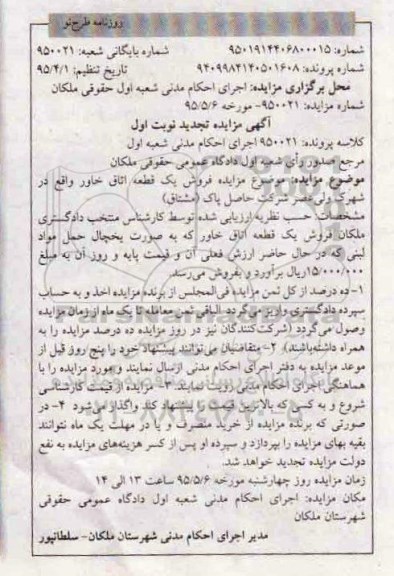 روزنامه طرح نو
شماره: ۹۵۰۱۹۱۴۴۰۶۸۰۰۰۱۵ شماره بایگانی شعبه: ۹۵۰۰۲۱
شماره پرونده: ۹۴۰۹۹۸۴۱۴۰۵۰۱۶۰۸ تاریخ تنظیم: ۹۵/۴/۱
محل برگزاری مزایده: اجرای احکام مدنی شعبه اول حقوقی ملکان
شماره مزایده: ۹۵۰۰۲۱- مورخه ۹۵/۵/۶
آگهی مزایده تجدید نوبت اول
کلاسه پرونده: ۹۵۰۰۲۱ اجرای احکام مدنی شعبه اول
مرجع صدور رأی شعبه اول دادگاه عمومی حقوقی ملکان
موضوع مزایده: موضوع مزایده فروش یک قطعه اتاق خاور واقع در
شهرک ولی عصر شرکت حاصل پاک (مشتاق)
مشخصات: حسب نظریه ارزیابی شده توسط کارشناس منتخب دادگستری
ملکان فروش یک قطعه اتاق خاور که به صورت یخچال حمل مواد
لبنی که در حال حاضر ارزش فعلی آن و قیمت پایه و روز آن به مبلغ
۱۵/۰۰۰/۰۰۰ریال برآورد و بفروش می‌رسد.
۱- ده درصد از کل ثمن مزایده فی‌المجلس از برنده مزایده اخذ و به حساب
سپرده دادگستری واریز می‌گردد الباقی ثمن معامله تا یک ماه از زمان مزایده
وصول می‌گردد (شرکت‌کنندگان نیز در روز مزایده ده درصد مزایده را به
همراه داشته‌باشند) ۲- متقاضیان می‌توانند پیشنهاد خود را پنج روز قبل از
موعد مزایده به دفتر اجرای احکام مدنی ارسال نمایند و مورد مزایده را با
هماهنگی اجرای احکام مدنی رویت نمایند ۳- مزایده از قیمت کارشناسی
شروع و به کسی که بالاترین قیمت را پیشنهاد کند واگذار می‌شود ۴- در
صورتی که برنده مزایده از خرید منصرف و یا در مهلت یک ماه نتوانند
بقیه بهای مزایده را بپردازد و سپرده او پس از کسر هزینه‌های مزایده به نفع
دولت مزایده تجدید خواهد شد.
زمان مزایده روز چهارشنبه مورخه ۹۵/۵/۶ ساعت ۱۳ الی ۱۴
مکان مزایده: اجرای احکام مدنی شعبه اول دادگاه عمومی حقوقی
شهرستان ملکان
مدیر اجرای احکام مدنی شهرستان ملکان- سلطانپور